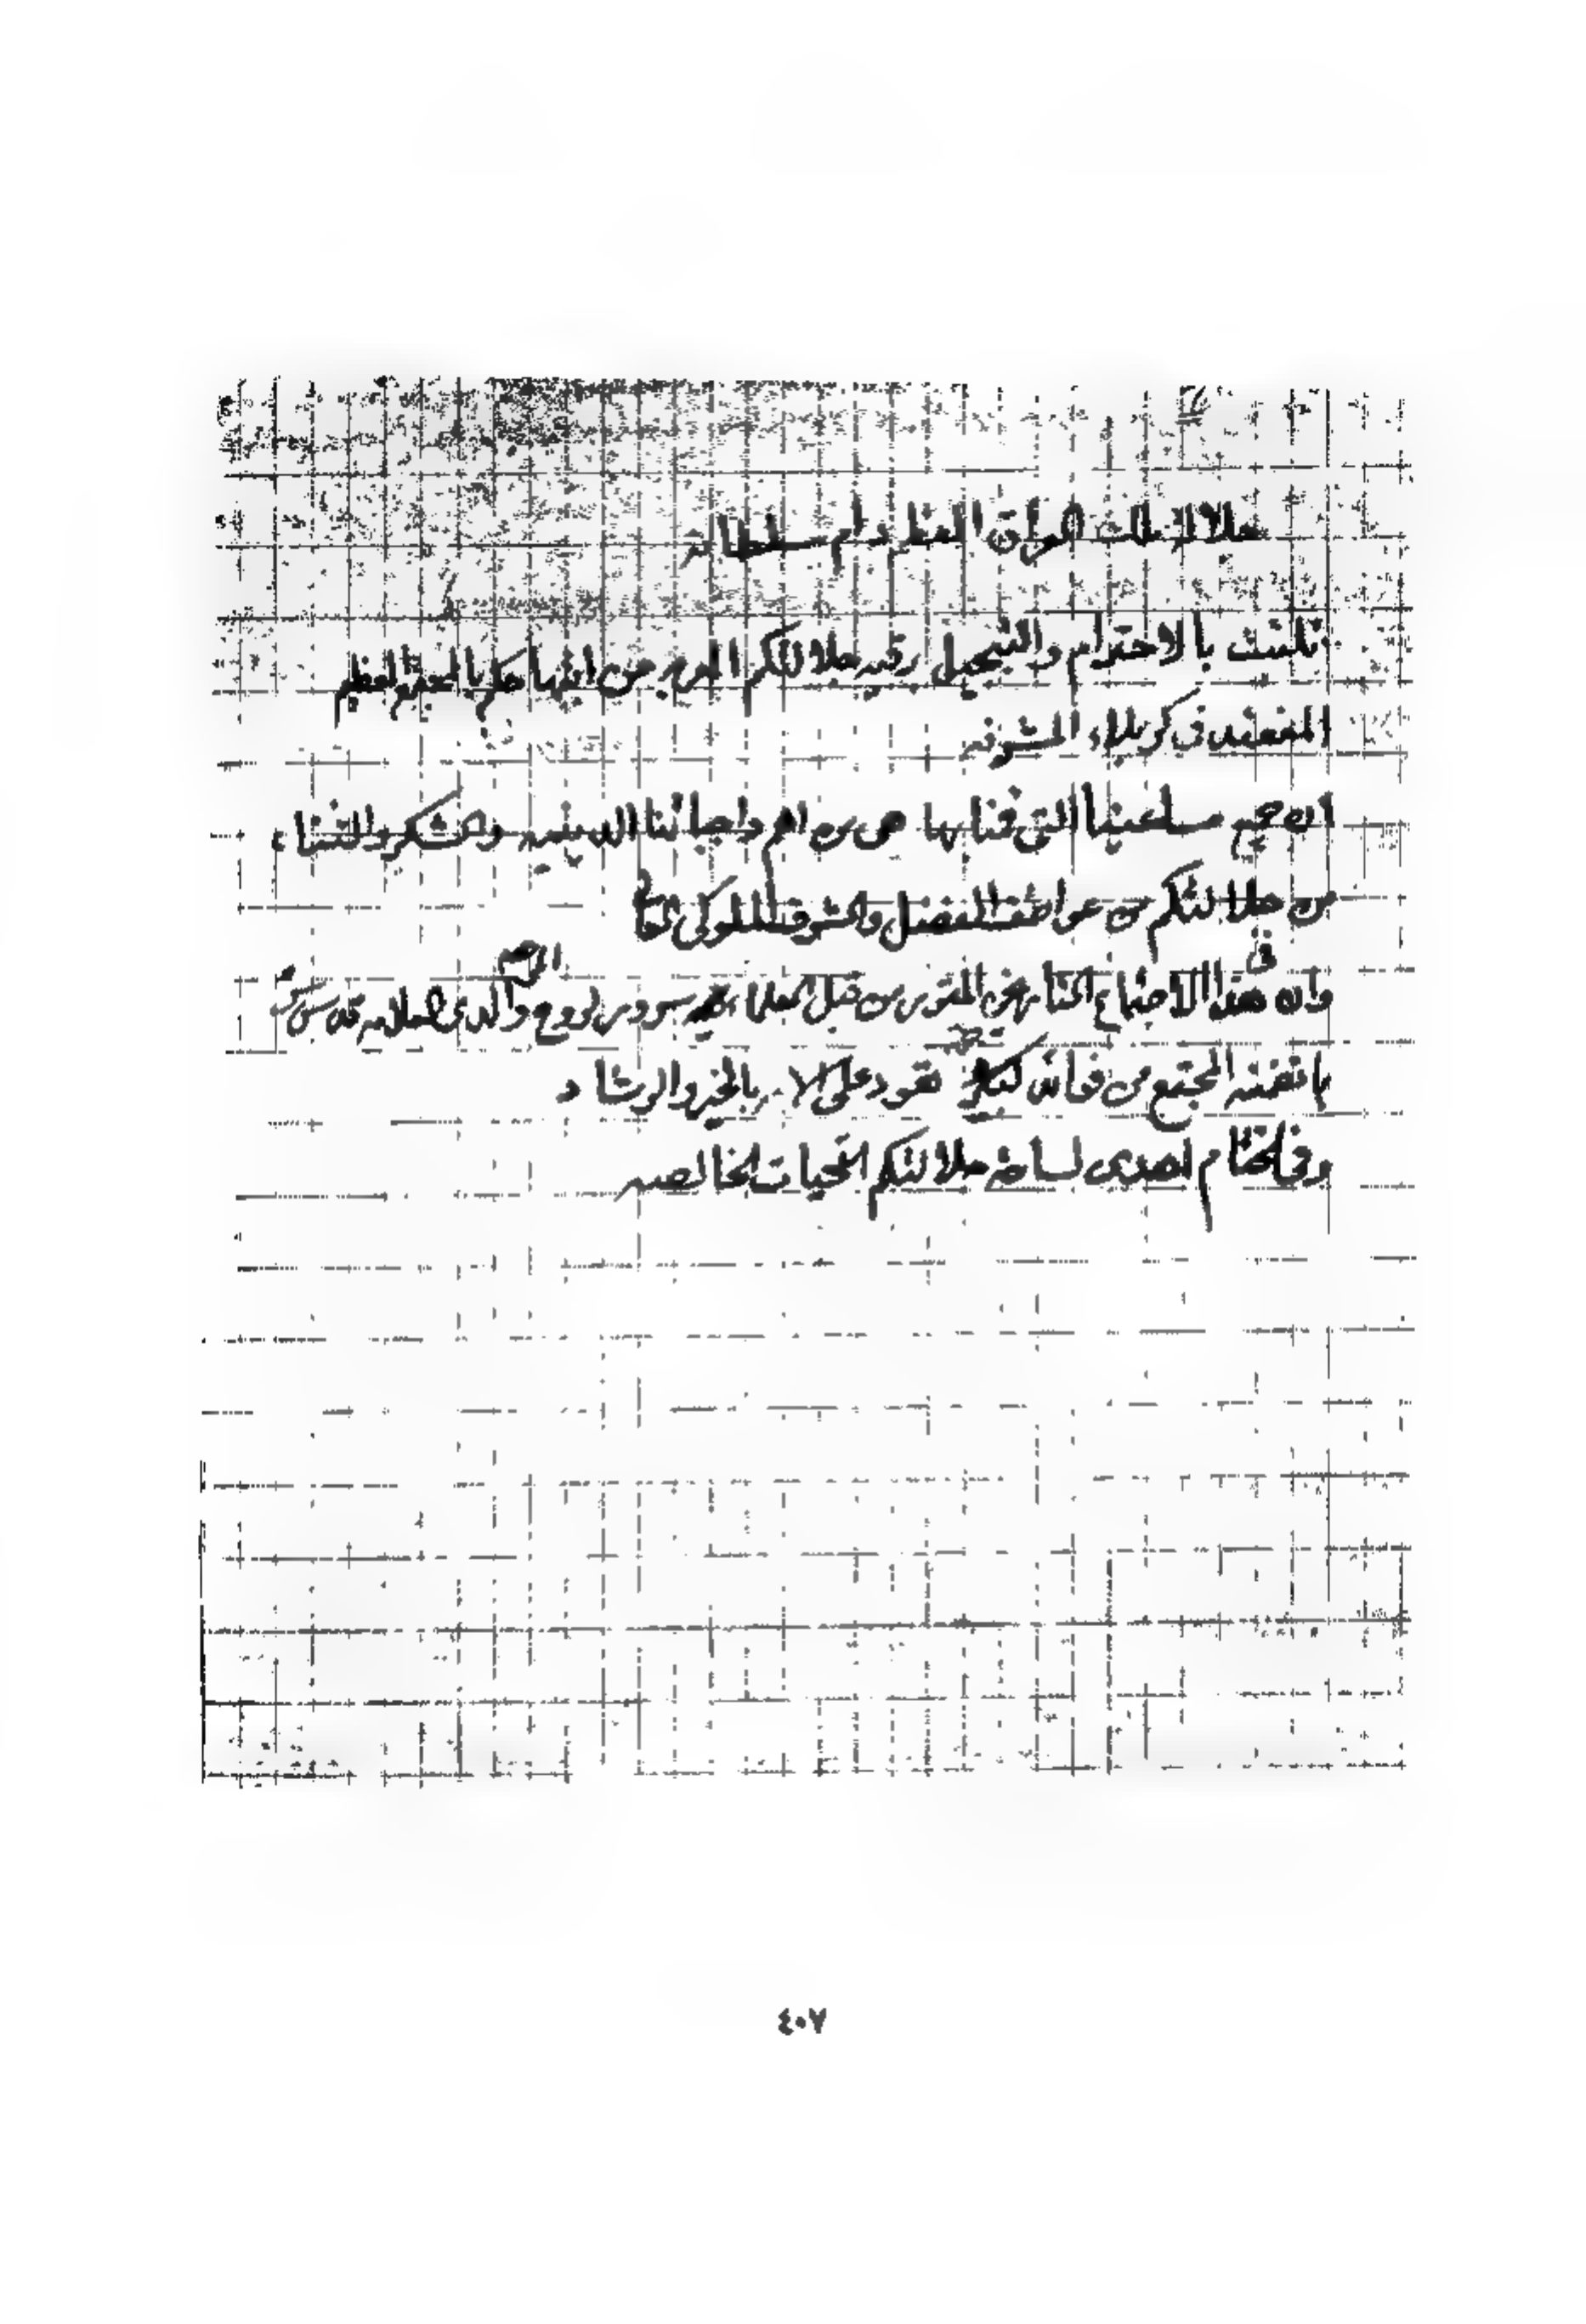 جلالة ملك العراق المعظم دام سلطانه
تلقيت بالاحترام والتبجيل برقيه جلالتكم من ابتهاجكم بالمجتمع العظيم
المنعقد في كربلاء المشرفه
ان جميع مساعينا التي قمنا بها هي من اهم واجباتنا الدينيه والشكر والثناء
من جلالتكم من عواطف الفضل والشرف الملوكي
وان في هذا الاجتماع من قبل العلماء سرور لروح والدي المرحوم العلامه
بما تضمنه المجتمع من فوائد تعود على بالخير والرشاد
وفي الختام اهدى لساحة جلالتكم التحيات الخالصه
٤٠٧